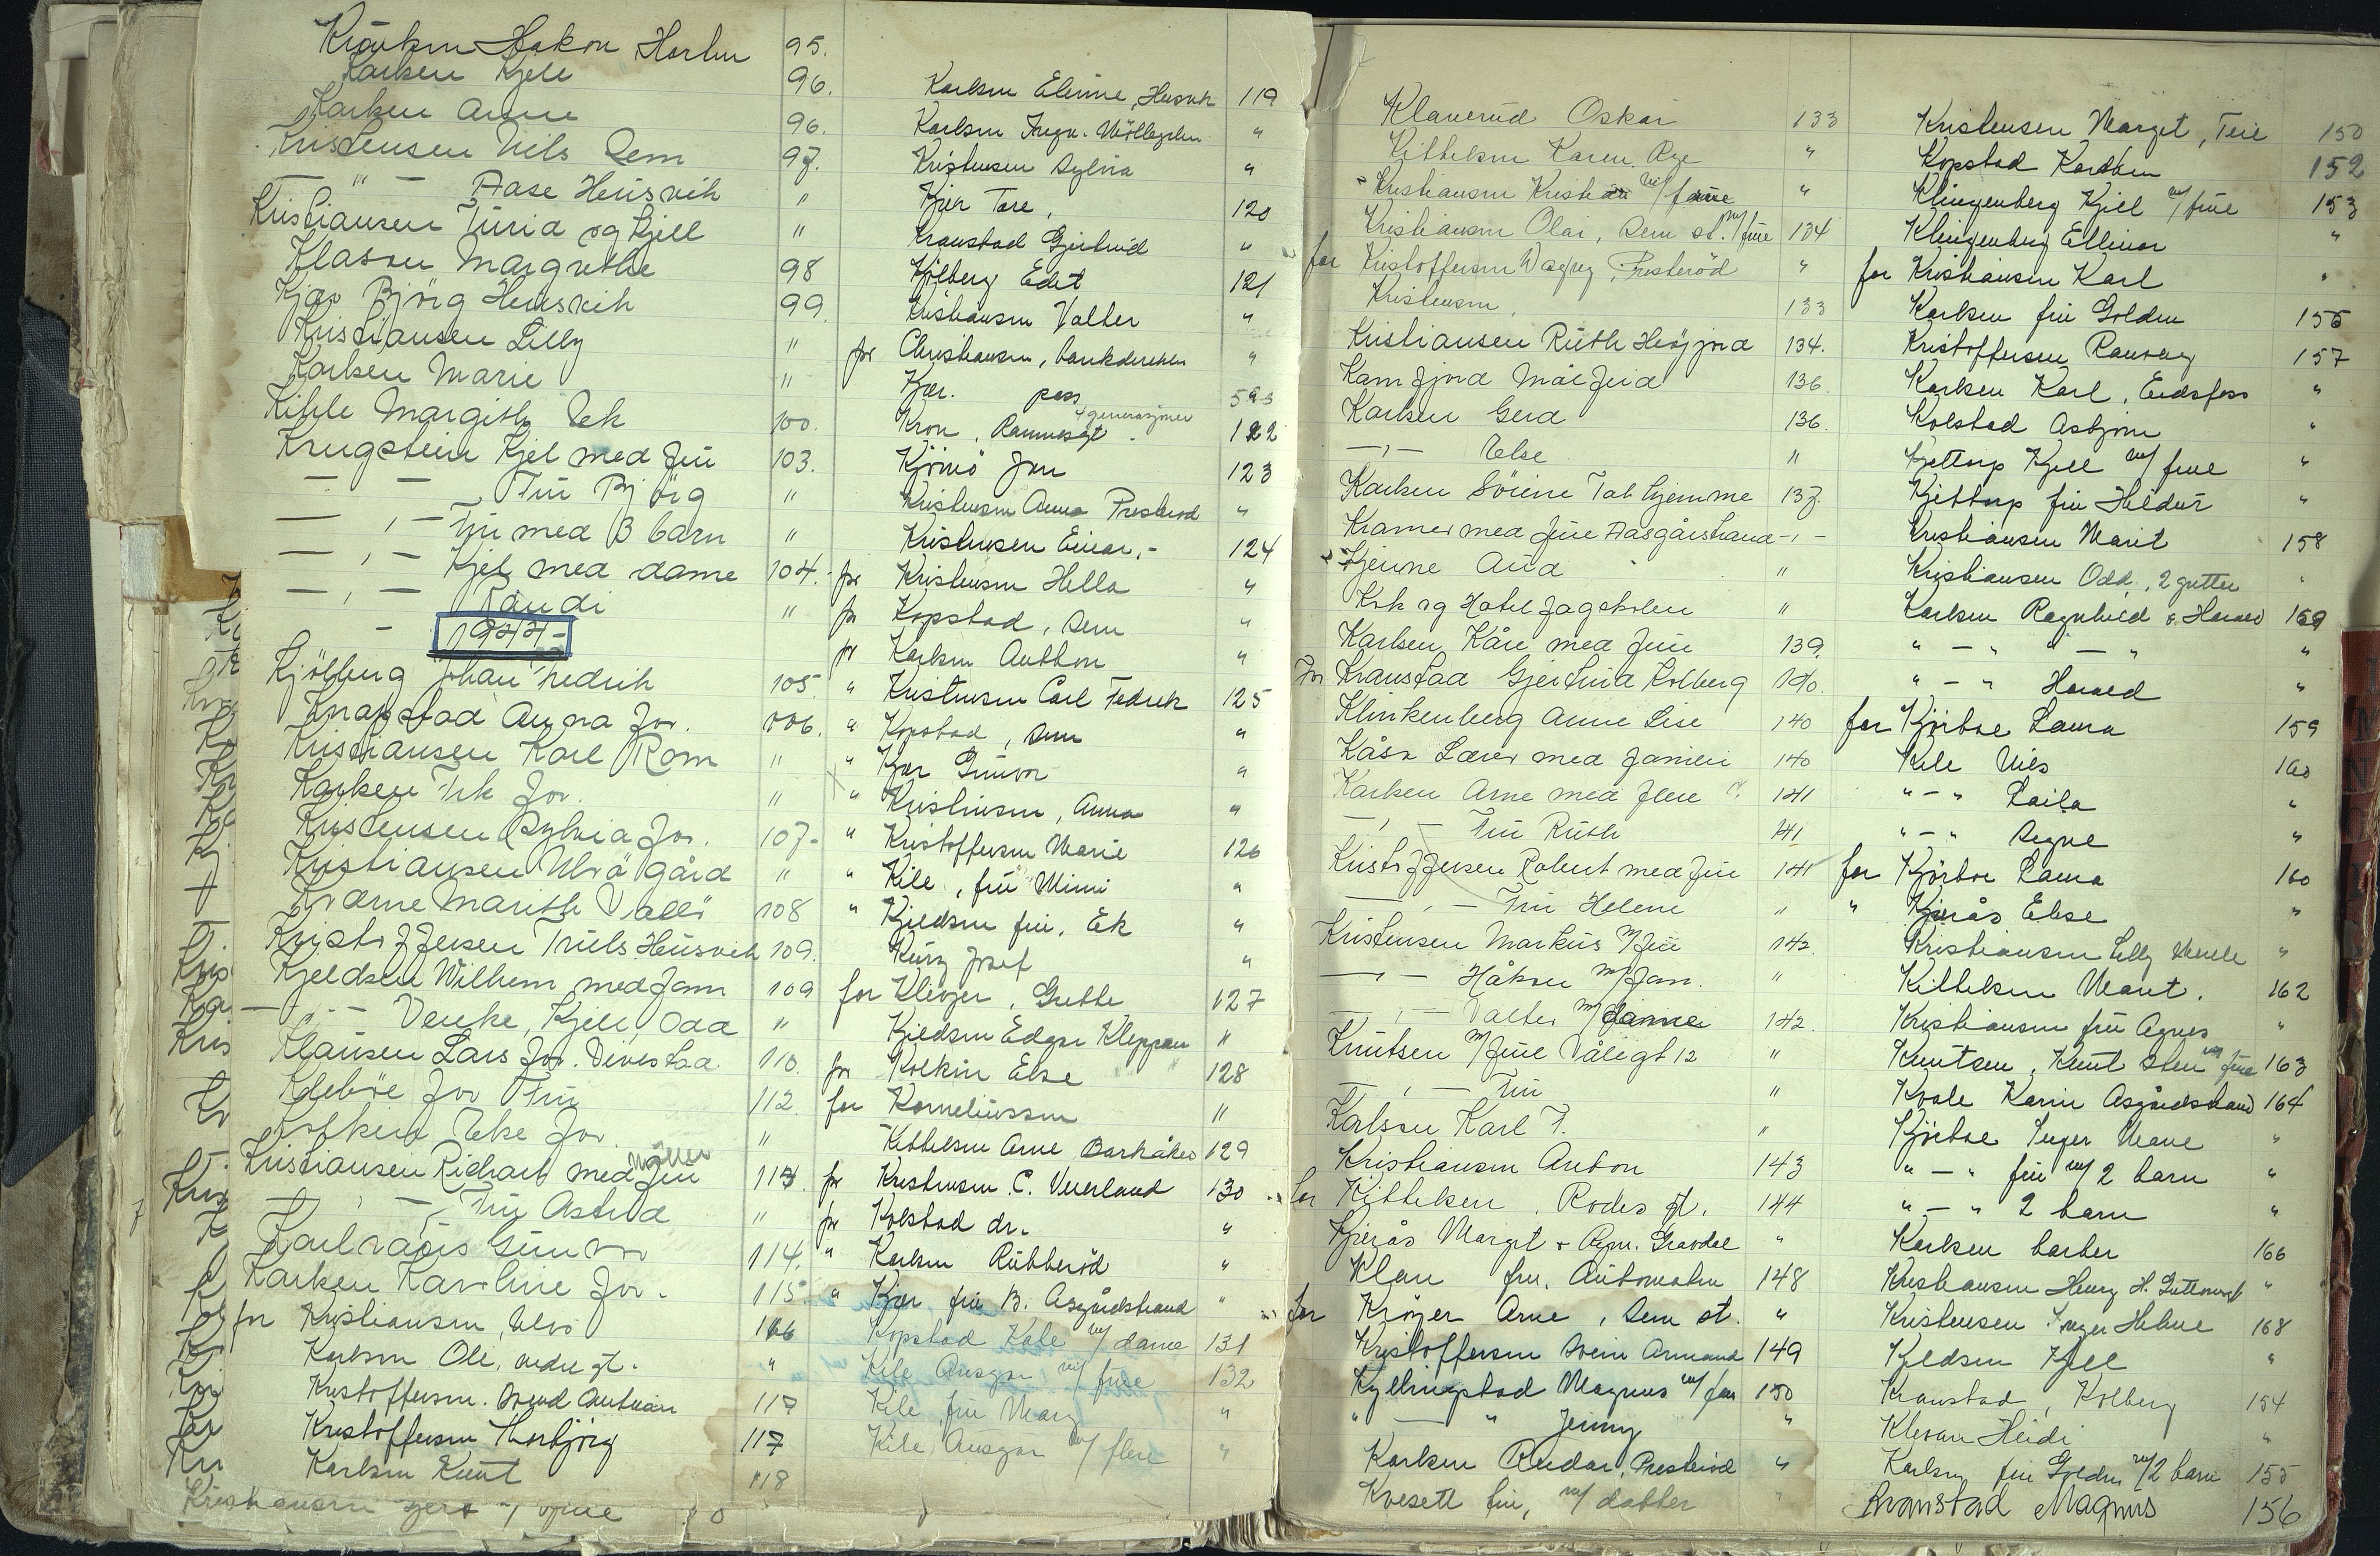 Hakon 95.
Karlsen Kjell 96.
Karlsen Arne 96.
Kristensen Nils Sem 97.
— " — Aase Husvik "
Kristiansen Turid og Kjell "
Klasson Margrethe 98
Kjær Björg Husvik 99
Kristiansen Lilly "
Karlsen Marie "
Margith Ek 100.
Krugstein Kjel med fru 103.
— — Fru Björg "
— , — fru med 3 barn "
— , — Kjel med dame 104.
— , — Randi "
- 1944-
Kjölberg Johan Fredrik 105.
Knapstad Anna for. 106.
Kristiansen Karl Rom "
Karlsen for. "
Kristensen Sylvia for. 107-
Kristiansen Ulvö gård "
Kværne Marith Vallö 108
Kristoffersen Truls Husvik 109.
Kjeldsen Wilhem med fam 109
— " — Venke, Kjell, Odd "
Klausen Lars for. 110.
for Fru 112.
for. "
Kristiansen Richart med fru 113.
— , — Fru Astrid "
Gunvor 114.
Karlsen Karoline for. 115
for Kristiansen, Ulvö 116
Karlsen Ole, nedre gt. "
Kristoffersen. Svend 117
Kristoffersen Thorbjörg 117
Karlsen Knut 118
Kristiansen
Karlsen Elinne, Husvik 119
Karlsen "
Kristensen Sylvia "
Kjær Tore, 120
Kranstad Gjertrud "
Kjölberg Edit 121
Kristiansen Valter "
for Christiansen, bankdirektør "
Kjær. pass 593
Kron, Ramnesgt. 4 generasjoner 122
Kjömö Jan 123
Kristensen Anna Presterød "
Kristensen Einar, - 124
for Kristensen Hella "
for Kopstad, Sem "
for Karlsen Anthon "
" Kristensen Carl Fedrik 125
" Kopstad, Sem "
" Kjær Gunvor "
" Kristensen, Anna "
" Kristoffersen Marie 126
" Kile, fru Mimi "
" Kjeldsen fru, Ek "
Kurz Josef "
for Klevjer, Grethe 127
Kjeldsen Edgar Kleppan "
for Kolkin Else 128
for Korneliussen "
Kittelsen Arne Barkåker 129
for Kristensen C. Veierland 130
for Kolstad dr. "
" Karlsen Rubberöd "
" Kjær fru B. Asgårdstrand "
Kopstad Kate m/ dame 131
Kile Ansgar m/ frue 132
Kile, fru Mary "
Kile, Ansgar m/ flere "
Klaverud Oskar 133
Kittelsen Karen "
Kristiansen Kristian m/ frue "
Kristiansen Olai, Sem st. m/ frue 134
for Kristoffersen Dagny, Presteröd "
Kristensen, 133
Kristiansen Ruth Höyjord 134.
Kamfjord Målfrid 136
Karlsen Gerd 136.
— , — Else "
Karlsen Sörine hjemme 137.
Kramer med frue Aasgårstrand - , -
Kjenne Aud "
Kok og Hotel fagskolen "
Karlsen Kåre med fru 139.
for Kranstad Gjertrud Kolberg 140.
Klinkenberg Anne Lise 140
Kåsa Lærer med familie 140
Karlsen Arne med flere 141
— , — Fru Ruth 141
Kristoffersen Robert med fru 141
— , — Fru Helene "
Kristensen Markus m/ fru 142.
— , — Håkon m/ fam. "
— , — Valter m/ damer 142.
Knutsen m/ frue Våligt 12 "
— , — Fru "
Karlsen Karl F. "
Kristiansen Anton 143
for Kittelsen, Rodes gt. 144
Kjerås Margit + Gravdal "
Klau fru, 148
for Kröyer Arne, Sem st. "
Kristoffersen Svein Armand 149
Kyllingstad Magnus m/ fru 150
" — " Jenny "
Karlsen Reidar, Presterød "
Kvesetl fru, m/ datter "
Kristensen Margit, Teie 150
Kopstad Kordben 152
Klingenberg Kjell m/ frue 153
Klingenberg Ellinor "
for Kristiansen Karl "
Karlsen fru Golden 155
Kristoffersen Ranveig 157
Karlsen Karl, Eidsfoss "
Kolstad Asbjörn "
Kjettorp Kjell m/ frue "
Kjettorp fru Hildur "
Kristiansen Marit 158
Kristiansen Odd, 2 gutter "
Karlsen Ragnhild & Harald 159
" — " — " "
" — " Harald "
for Kjörboe Laura 159
Kile Nils 160
" — " Laila "
" — " Signe "
for Kjörboe Laura 160
" Kjerås Else "
Kristiansen Lilly "
Kittelsen Marit. 162
Kristiansen fru Agnes "
Knutsen, Knut Sten m/ frue 163
Kvale Karin Asgårdstrand 164
Kjörboe Inger Marie "
" — " fru m/ 2 barn "
" — " 2 barn "
Karlsen barber 166
Kristiansen Henry H. "
Kristensen Inger Helene 168
Keldsen Kjell "
Kranstad, Kolberg 154
Klevan Heidi "
Karlsen fru Golden m/2 barn 155
Kranstad Magnus 156